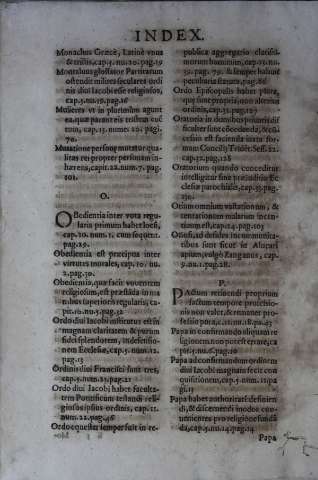 INDEX.
Monachus Græcè, Latinè vnus
& tristis, cap.5. nu.20. pag.19
Montaluus glossator Partitarum
ostendit milites seculares ordi
nis diui Iacobi esse religiosos,
cap.5.nu.19.pag.16
Mulieres vt in plurimum augent
ea, quæ parant eis tristem euē
tum, cap.13. nume. 20. pagi.
70.
Mutatione personę mutatur qua
litas rei propter personam in
hærens, cap.22.num.7. pag.
101.
O.
Obedientia inter vota regu
laria primum habet locū,
cap.20. num. 1. cum sequent.
pag.29.
Obedientia est præcipua inter
virtutes morales, cap.10. nu.
2.pag.30.
Obedientia, quæ facit vouentem
religiosum, est præstāda in ma
nibus superioris regularis, ca-
pit.10.nu.5.pag.32
Ordo diui Iacobi institutus est in
magnam claritatem & puram
fidei splendorem, indefensio-
nem Ecclesiæ, cap.1. nu.5.pag.
4.
Ordinis diui Francisci sunt tres,
cap.5.num.23.pag.21
Ordo diui Iacobi habet faculta-
tem Pontificum testandi reli-
giosos ipsius ordinis, cap. 11.
num.22.pag.46
Ordo equester semper fuit in re-
publica aggregatio clarissi-
morum hominum, cap.13. nu.
39. pag. 79. & semper habuit
peculiaria statuta. 86
Ordo Episcopalis habet plura,
quæ sunt propria, non alterius
ordinis, cap.23. nu.10. pag.
Oratoria in domibus priuatis dif
ficulter sunt cōcedenda, & cō-
cessio est facienda iuxta for-
mam Concilij Tridēt. Sess. 22.
cap.32.pag.128
Oratorium quando conceditur
intelligitur sine præiudicio Ec
clesiæ parochialis, cap.33.pag.
130.
Otium omnium vastationum, &
tentationem malarum incen-
tiuum est, cap.14. pag.165
Otiosi, ad similes incommunica-
tibus sunt sicut se Aluparij
apium, vulgò Zanganos, cap.
9.nu.1.pag.28.
P.
Pactum retinendi proprium
factum tempore prouisio-
nis non valet, & remouet pro-
fessio pora, c.11.nu.18.pag.43
Papa in confirmando aliquam re
ligionem non potest errare, ca
pit.3.nu.6.pag.10
Papa ad confirmandum ordinem
diui Iacobi magnam fecit con
quisitionem, cap.5.num.12.
pag.13
Papa habet authoritatē definien
di, & discernendi modos con-
uenientes pro religione funda
da, cap.5.nu.14.pag.14
Papa